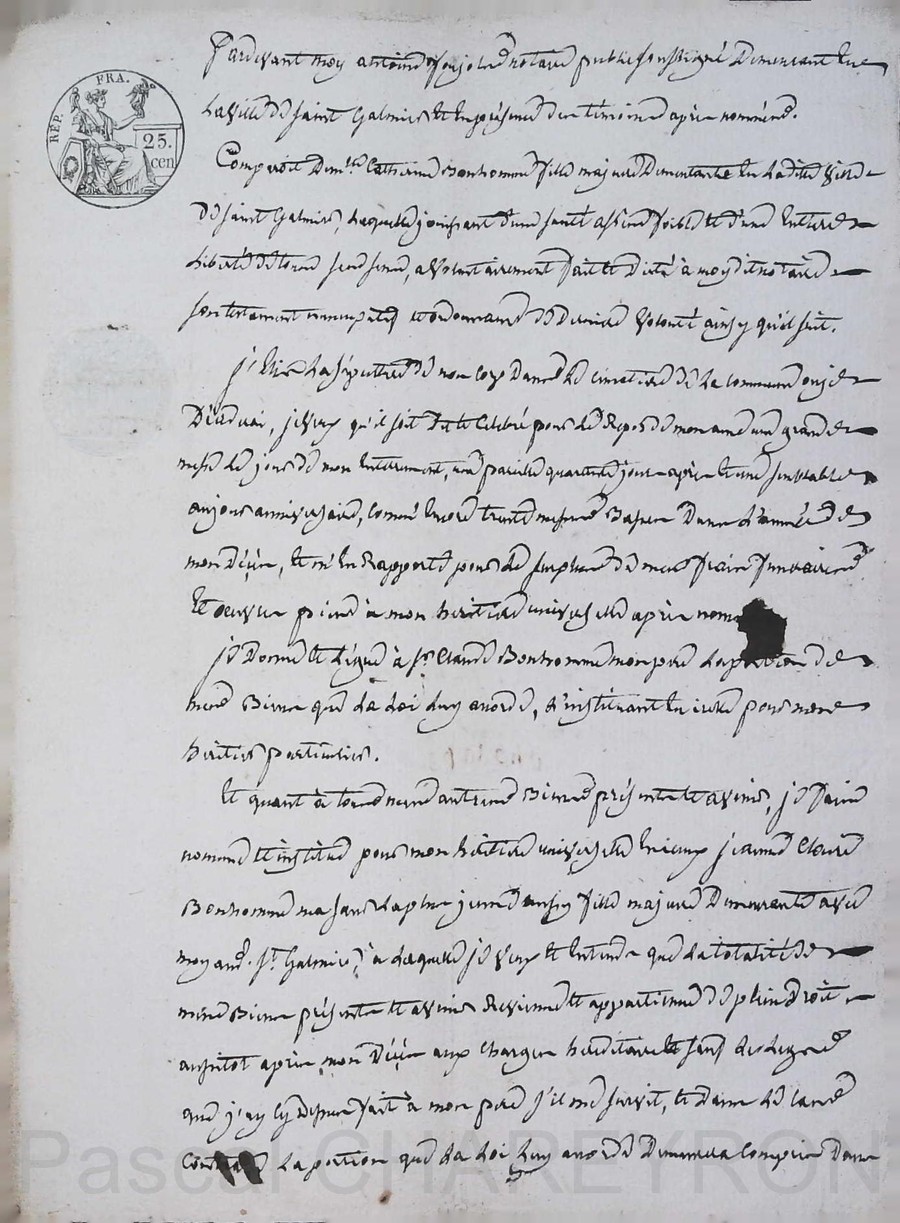 RÉP. FRA.
25.
cen
Pardevant moy antoine notaire public soussigné Demeurant en
La ville de saint Galmier et en présence des temoins après nommés.
Comparoit Dem.lle Catherine Bonhomme fille majeure Demeurante en Ladite ville
de saint Galmier, Laquelle jouissant d'une santé assés foible et d'une Entiere
Liberté de tous ses sens, a volontairement fait et Dicté à moy dit notaire
son testament nuncupatif et ordonnance de Derniere volonté ainsy qu'il suit.
j'Elis La sépulture de mon corps dans Le cimetiere de La commune ou je
Décéderai, je veux qu'il soit Dit et Célébré pour Le Repos de mon ame une grande
messe Le jour de mon Enterrement, une pareille quarante jours après et une semblable
au jour anniversaire, comme Encore trente messes Basses Dans L'année de
mon Décès, et m'En Rapporte pour Le surplus de mes fraix funeraires
Et oeuvres pies à mon heritiere universelle après nom
je Donne et Légue à sr. Claude Bonhomme mon pere La portion de
mes Biens que La Loi Luy accorde, L'instituant En icelle pour mon
heritier particulier.
Et quant à tous mes autres Biens présents et avenir, je fais
nomme et institue pour mon heritiere universelle En iceux jeanne Claire
Bonhomme ma soeur La plus jeune aussy fille majeure Demeurante avec
moy aud. st. Galmier, à Laquelle je veux et Entends que La totalité de
mes Biens présents et avenir Revienne et appartienne de plein Droit
aussitot après mon Décès aux charges hereditaires et sauf Le Legs
que j'ay cy Dessus fait à mon pere s'il me survit, et Dans Le cas
La portion que La Loi Luy accorde Demeurera Comprise Dans
Pascal CHAREYRON